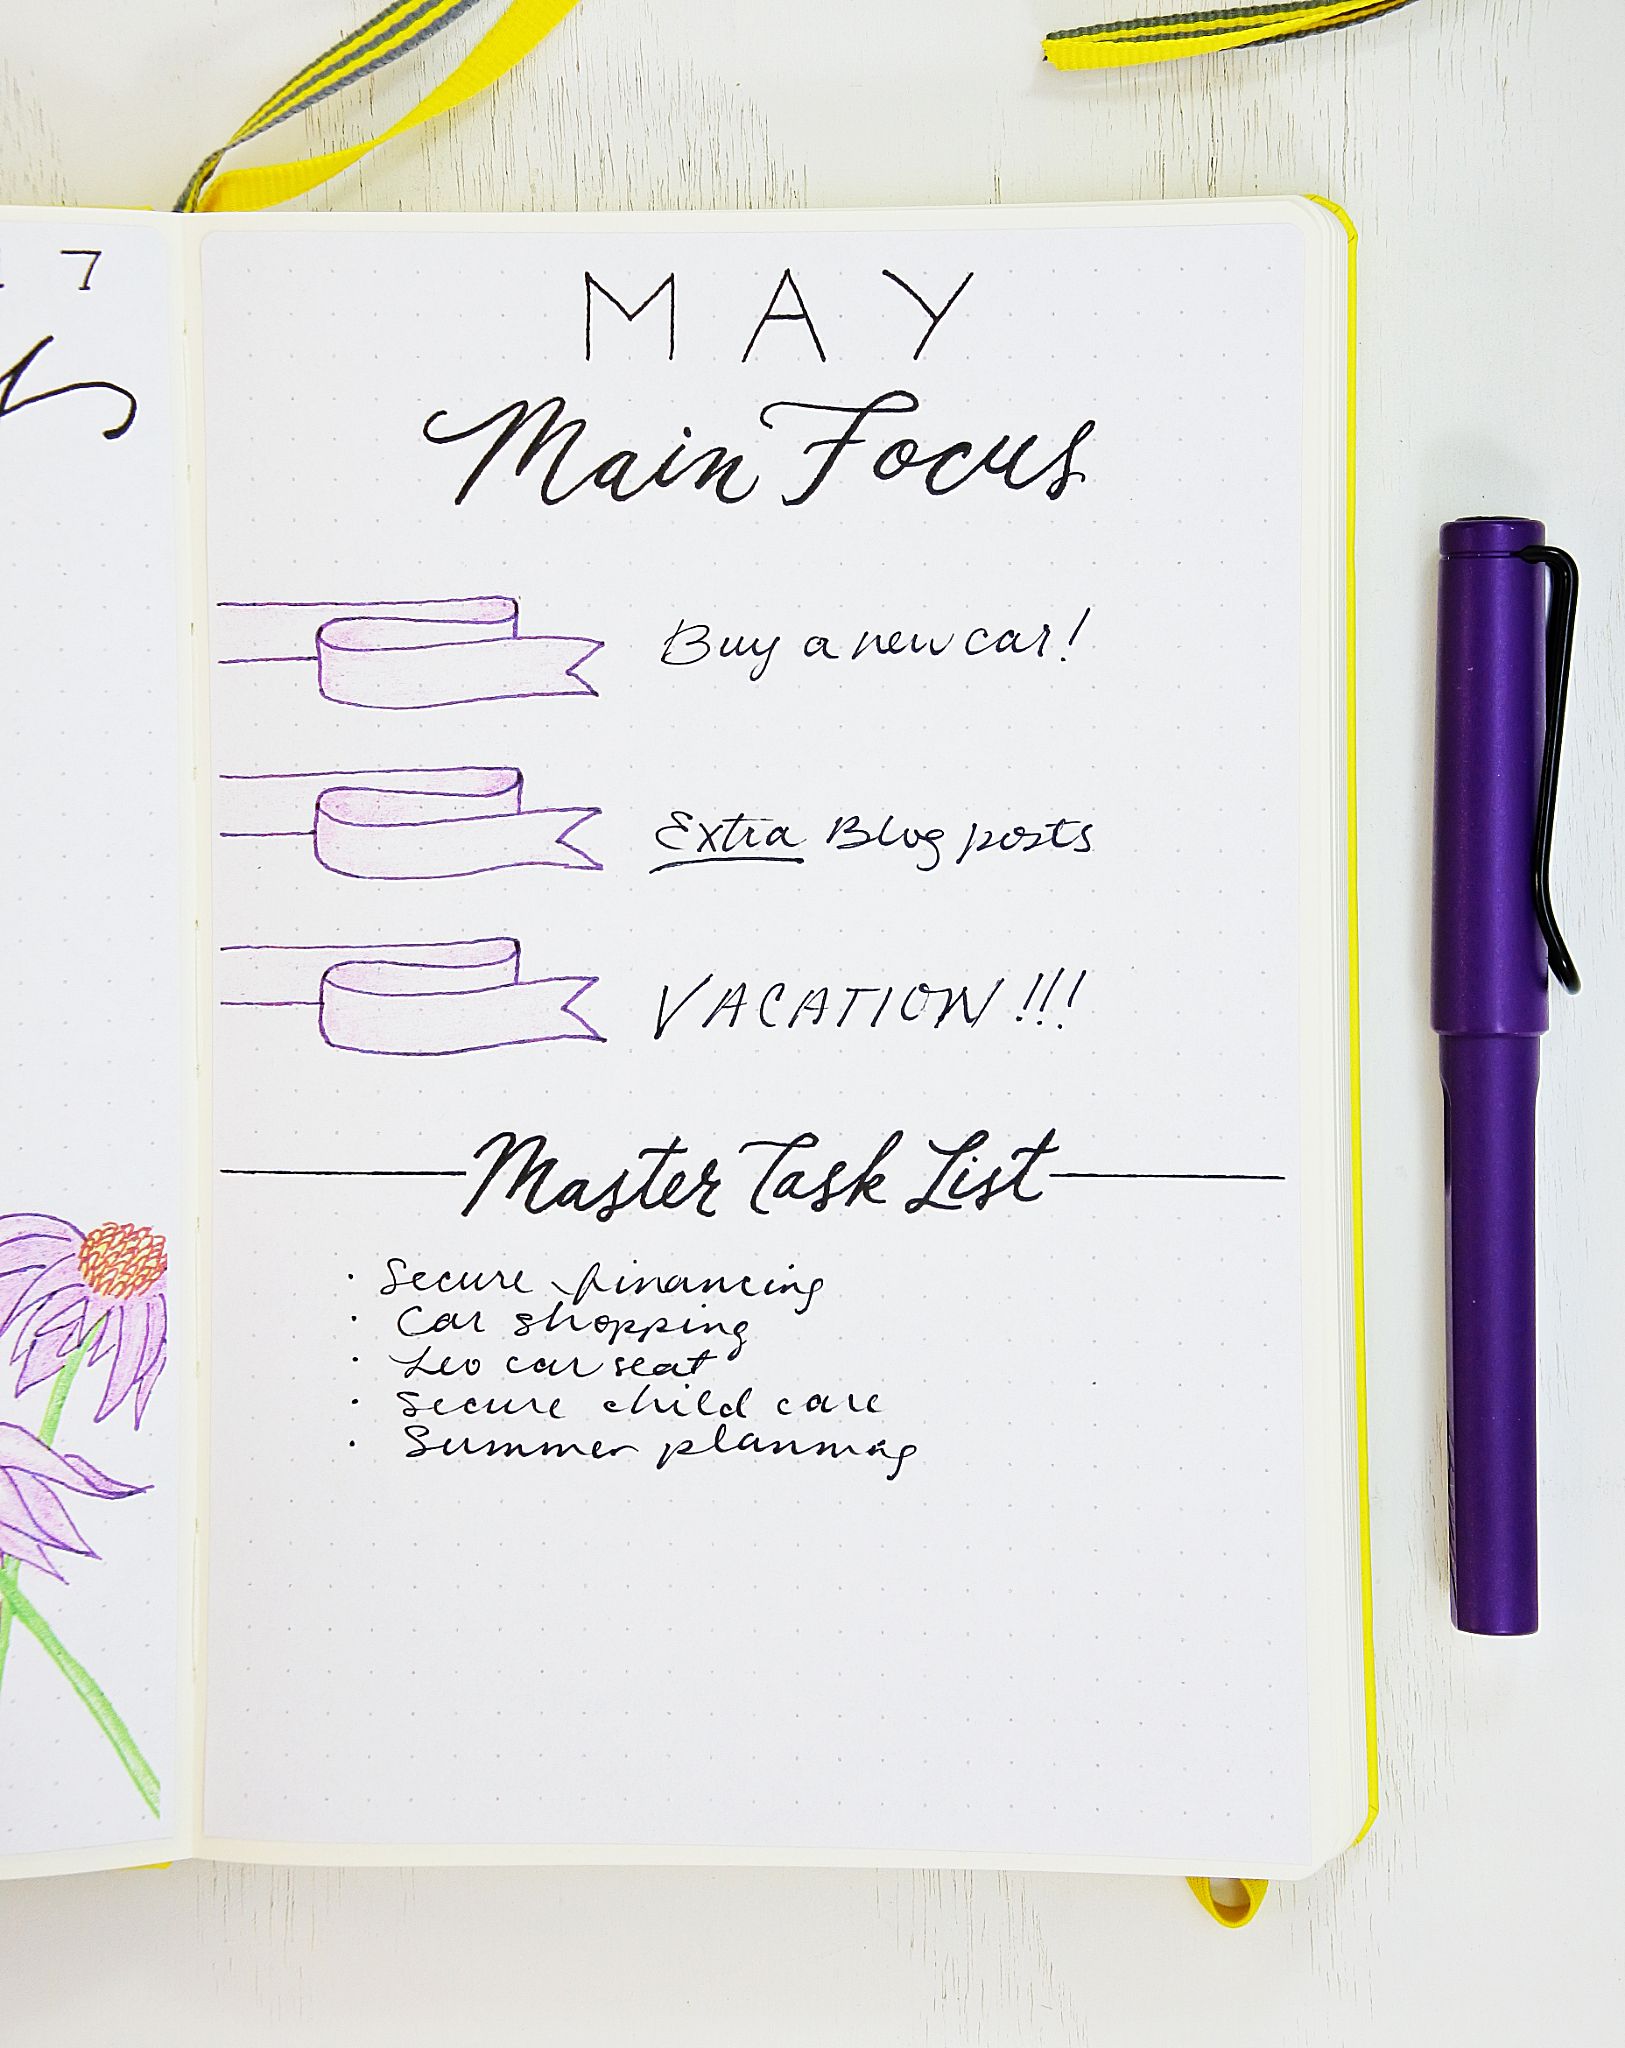 7
MAY
Main Focus
Buy a new car!
Extra Blog posts
VACATION!!!
Master Task List
· Secure financing
· Car shopping
· Leo car seat
· Secure child care
· Summer planning